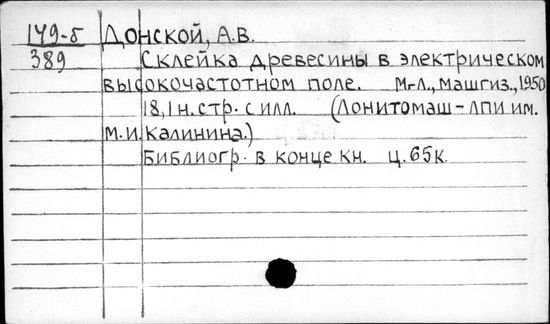 149-б Донской, А.В.
389 Склейка древесины в электрическом
высокочастотном поле. М-Л., Машгиз., 1950
18,1 н. стр. с илл. (Лонитомаш-ЛПИ им.
М.И. Калинина.)
Библиогр. в конце кн. ц. 65к.